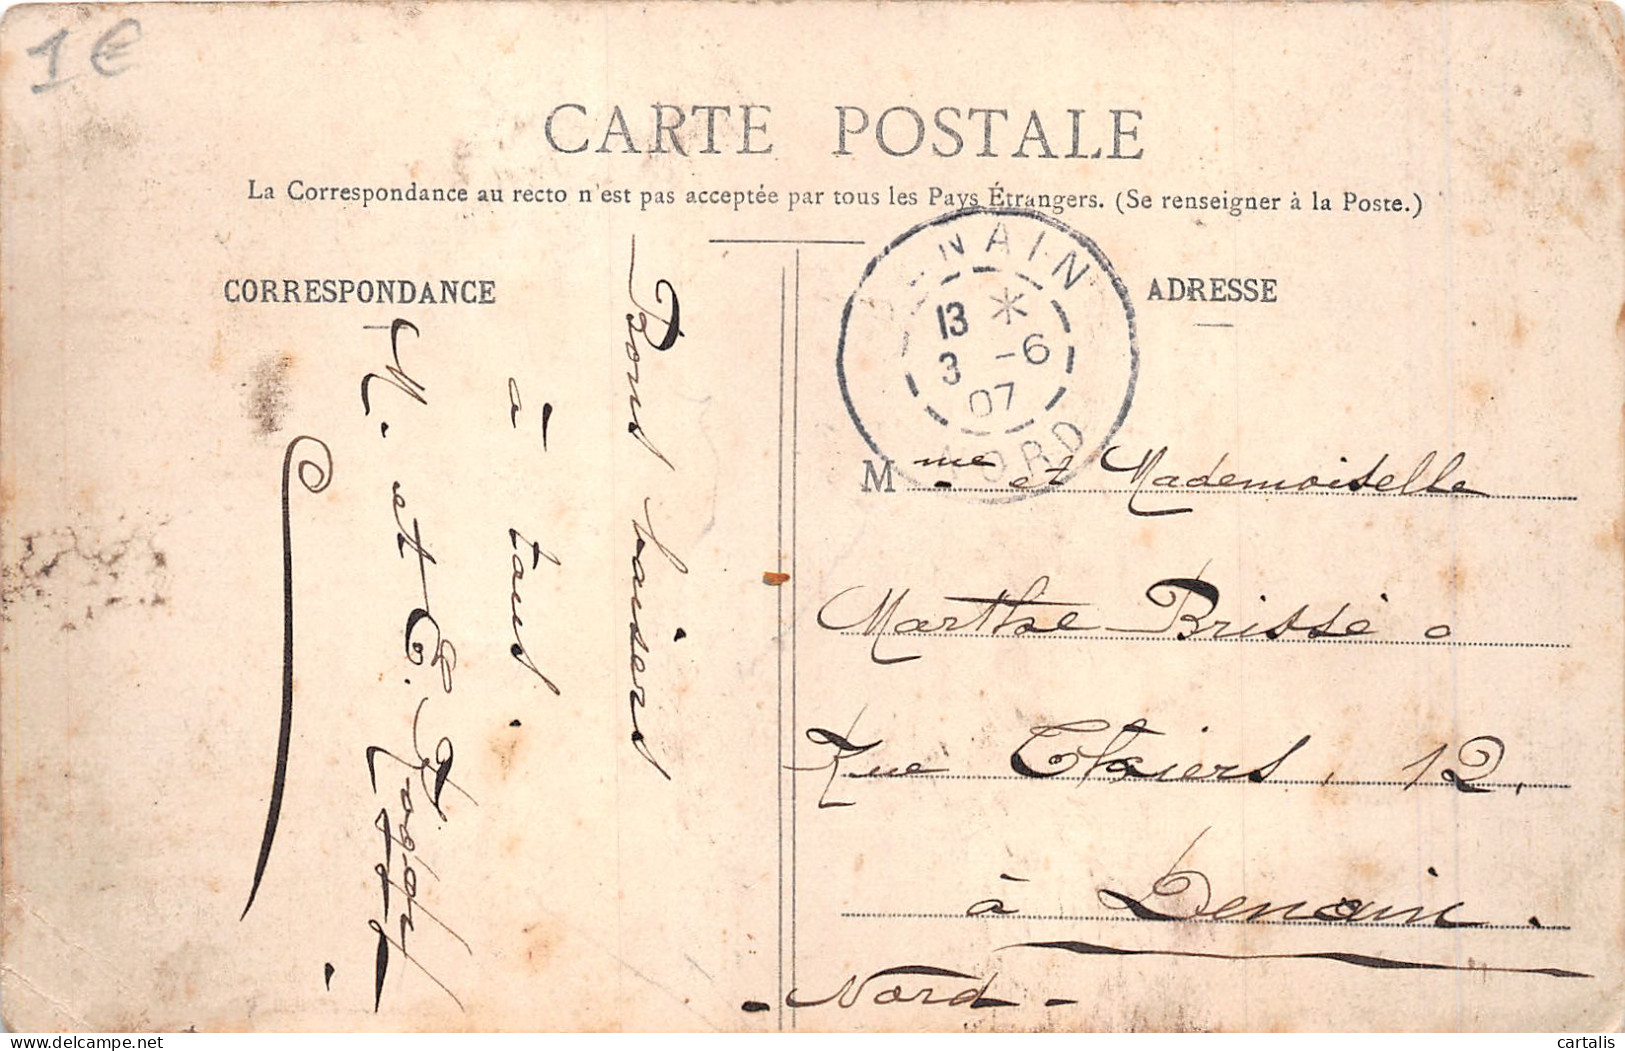 1€
CARTE POSTALE
La Correspondance au recto n'est pas acceptée par tous les Pays Étrangers. (Se renseigner à la Poste.)
CORRESPONDANCE
Bons baisers
à tous.
M. et E.
ADRESSE
DENAIN
13 *
3 -6
07
NORD
Mme et Mademoiselle
Marthe Brissé
Rue Thiers, 12,
à Denain.
- Nord -
delcampe.net
cartalis